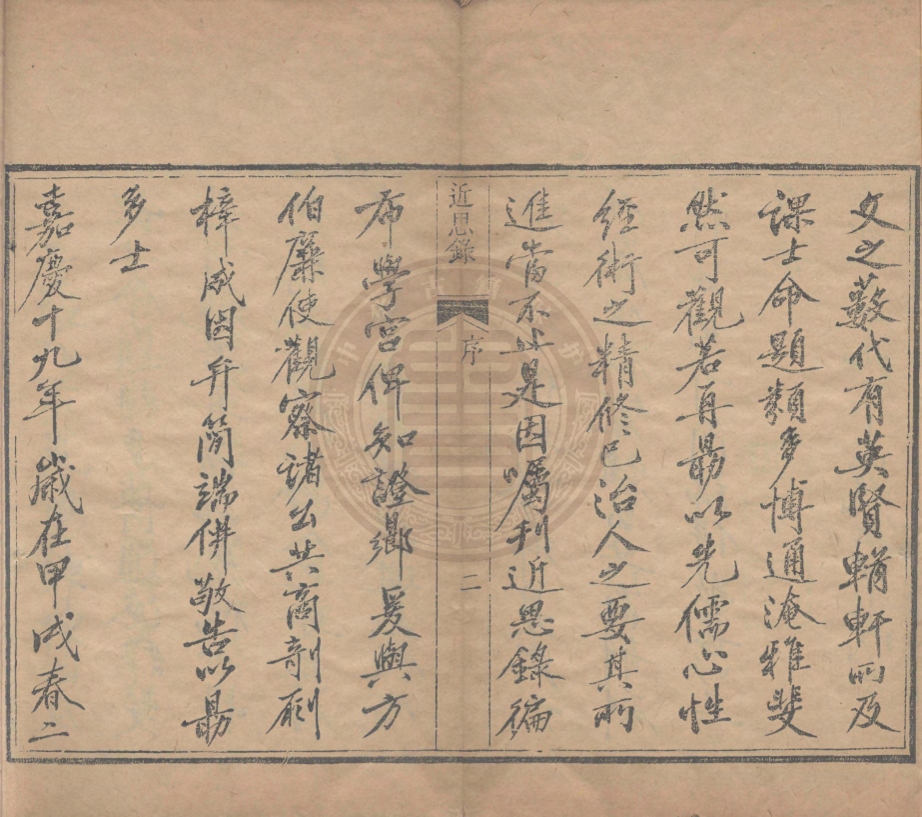 文之藪代有英賢輶軒所及
課士命題類多博通淹雅斐
然可觀若再勗以先儒心性
經術之精修己治人之要其所
進當不止是因囑刊近思錄徧
近思錄 序 二
布學宮俾知證鄉爰與方
伯廉使觀察諸公共商剞劂
梓成因弁簡端併敬告以勗
多士
嘉慶十九年歲在甲戌春二